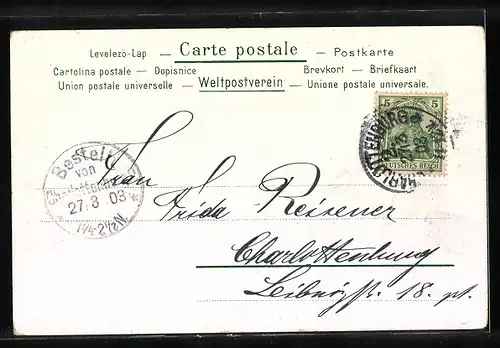 Levelező-Lap — Carte postale — Postkarte
Cartolina postale — Dopisnice Brevkort — Briefkaart
Union postale universelle — Weltpostverein — Unione postale universale.
5 5
DEUTSCHES REICH
CHARLOTTENBURG
Bestellt
von
27.3.03
1¼-2½N.
Frau
Frida Reisener
Charlottenburg
Leibnizstr. 18. pt.